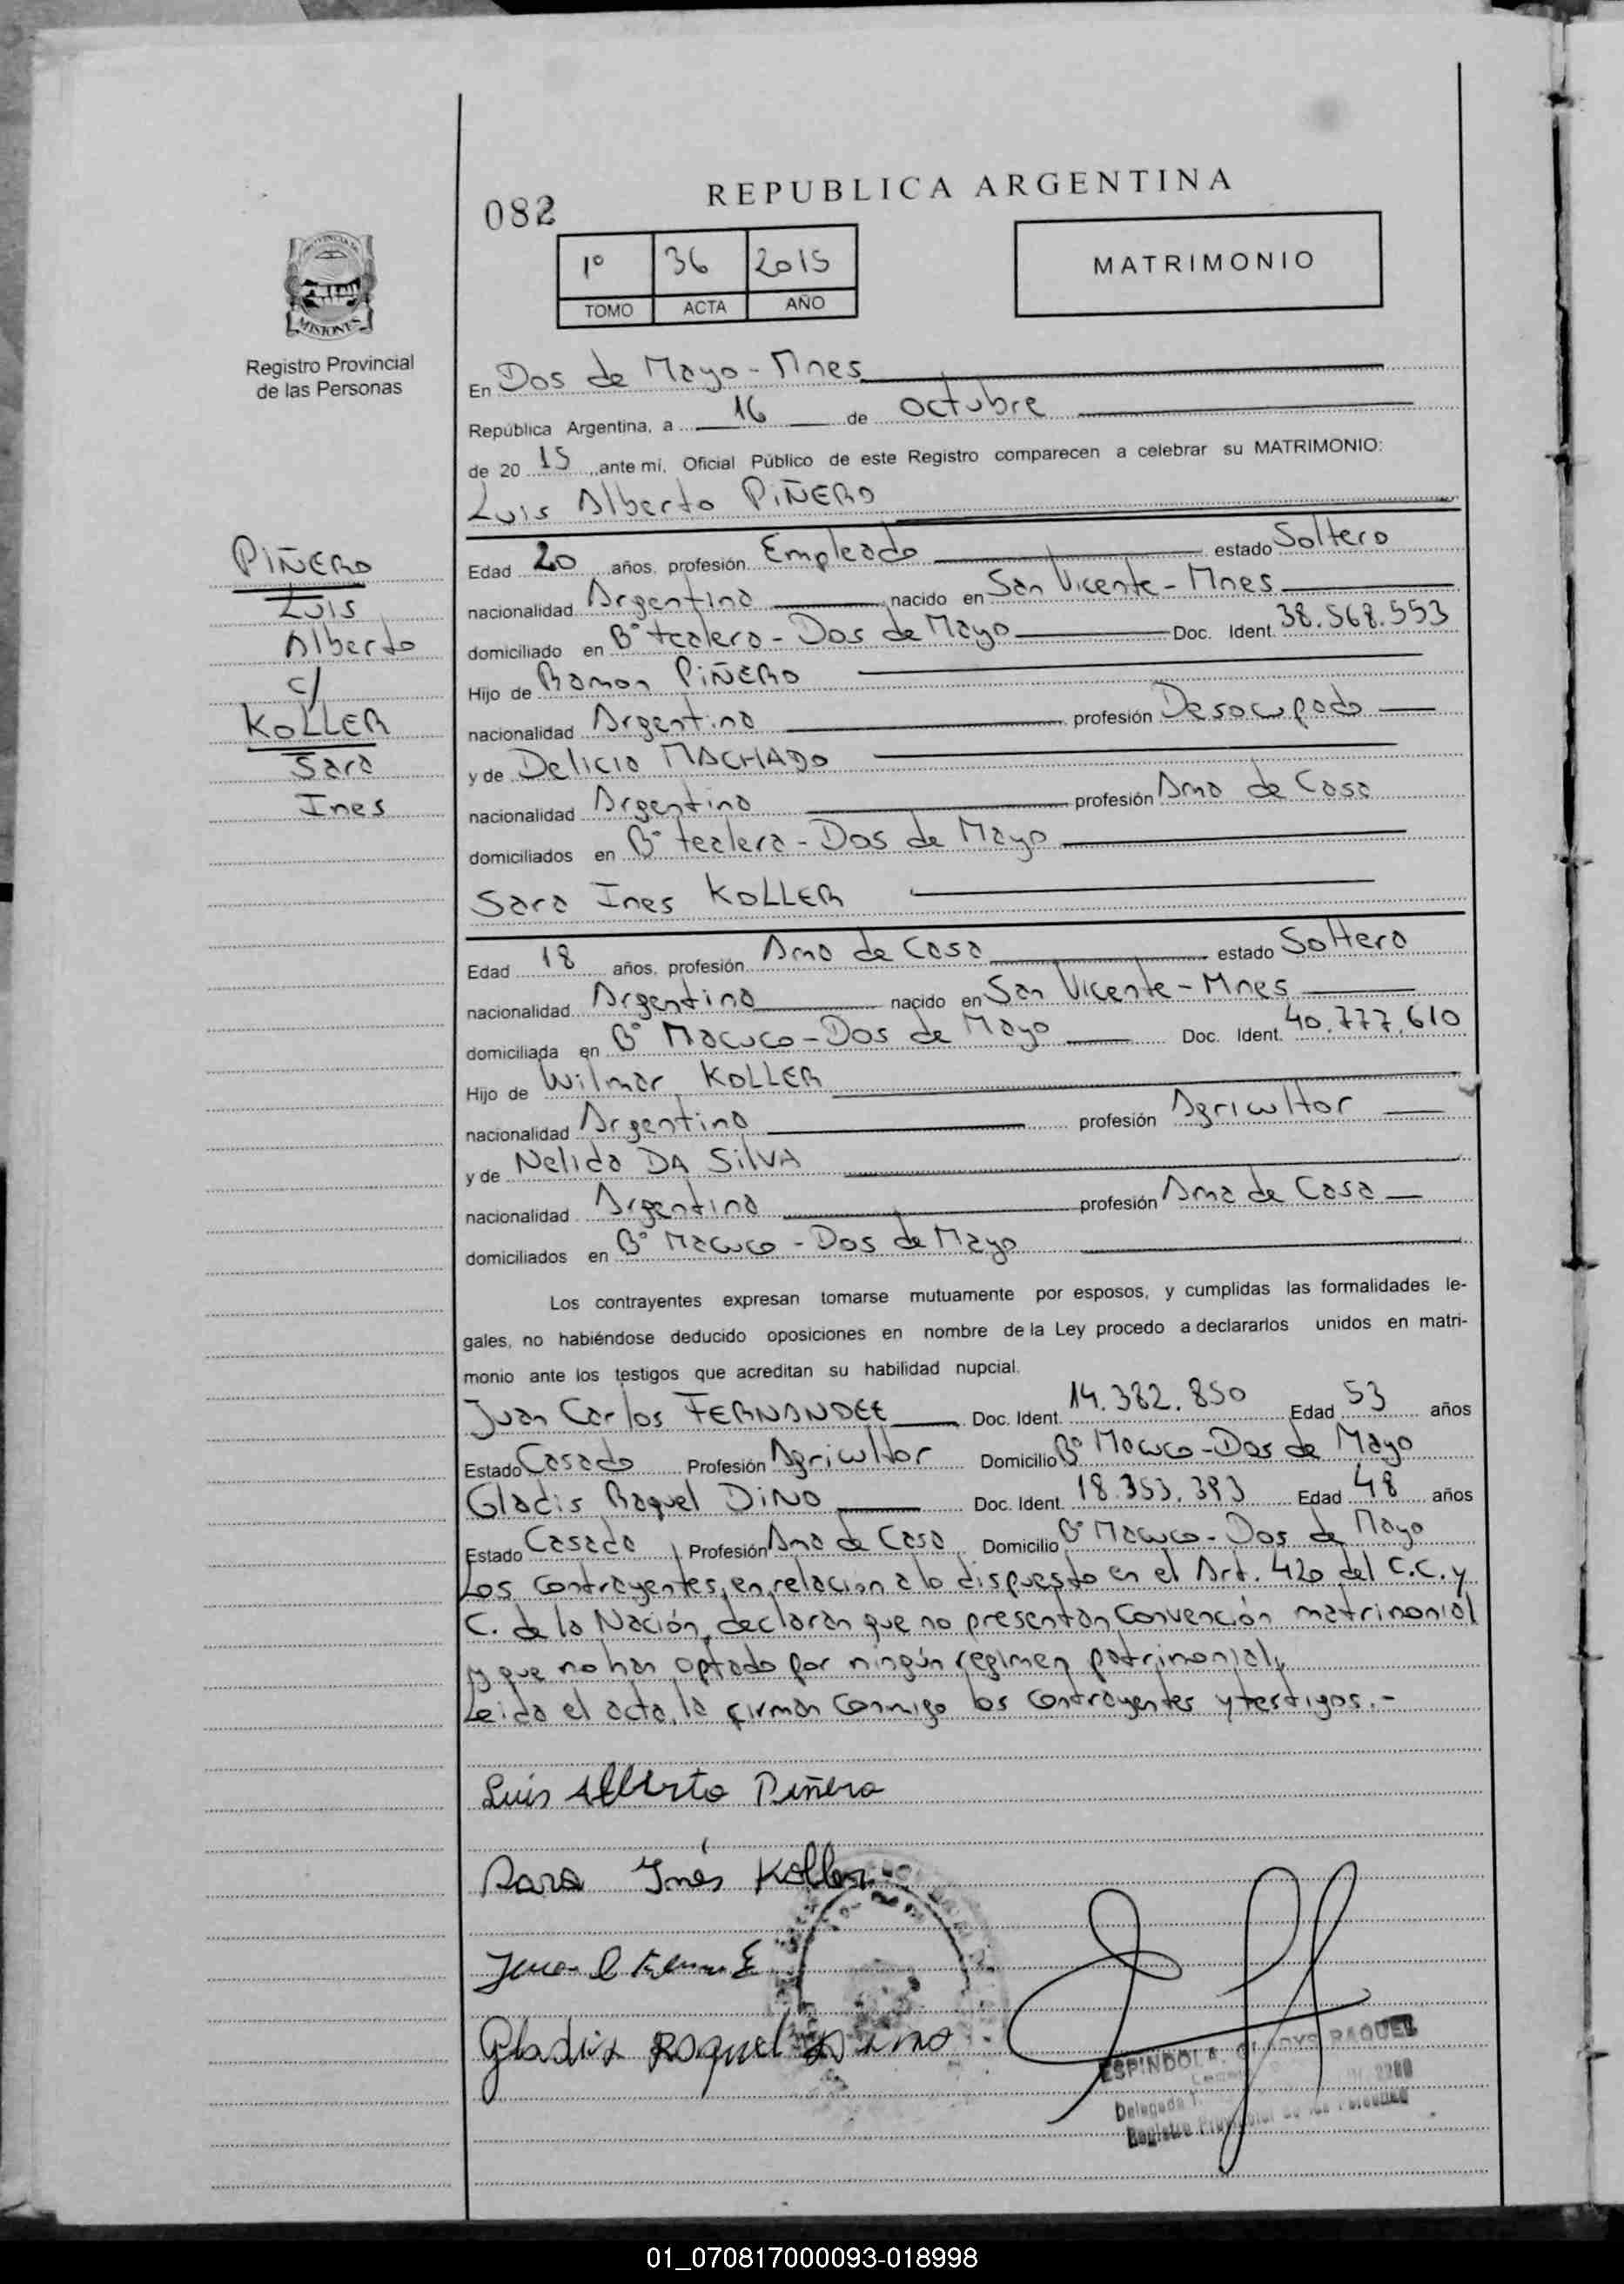 REPUBLICA ARGENTINA
082
1º 36 2015
TOMO ACTA AÑO
MATRIMONIO
PROVINCIA DE
MISIONES
Registro Provincial
de las Personas
PIÑERO
Luis
Alberto
c/
KOLLER
Sara
Ines
En Dos de Mayo - Mnes
República Argentina, a 16 de octubre
de 20 15 ante mí, Oficial Público de este Registro comparecen a celebrar su MATRIMONIO:
Luis Alberto PIÑERO
Edad 20 años, profesión Empleado estado Soltero
nacionalidad Argentina nacido en San Vicente - Mnes
domiciliado en Bº tealera - Dos de Mayo Doc. Ident. 38.568.553
Hijo de Ramon PIÑERO
nacionalidad Argentina profesión Desocupado
y de Delicia MACHADO
nacionalidad Argentina profesión Ama de Casa
domiciliados en Bº tealera - Dos de Mayo
Sara Ines KOLLER
Edad 18 años, profesión Ama de Casa estado Soltera
nacionalidad Argentina nacido en San Vicente - Mnes
domiciliada en Bº Macuco - Dos de Mayo Doc. Ident. 40.777.610
Hijo de Wilmar KOLLER
nacionalidad Argentina profesión Agricultor
y de Nelida DA SILVA
nacionalidad Argentina profesión Ama de Casa
domiciliados en Bº Macuco - Dos de Mayo
Los contrayentes expresan tomarse mutuamente por esposos, y cumplidas las formalidades le-
gales, no habiéndose deducido oposiciones en nombre de la Ley procedo a declararlos unidos en matri-
monio ante los testigos que acreditan su habilidad nupcial.
Juan Carlos FERNANDEZ Doc. Ident. 14.382.850 Edad 53 años
Estado Casado Profesión Agricultor Domicilio Bº Macuco - Dos de Mayo
Gladis Raquel DINO Doc. Ident. 18.353.393 Edad 48 años
Estado Casada Profesión Ama de Casa Domicilio Bº Macuco - Dos de Mayo
Los contrayentes, en relacion a lo dispuesto en el Art. 420 del C.C. y
C. de la Nación, declaran que no presentan Convención matrimonial
y que no han optado por ningún regimen patrimonial,
Leida el acta, la firman conmigo los contrayentes y testigos.-
Luis Alberto Piñero
Sara Inés Koller
Juan C
Gladis Raquel Dino
ESPINDOLA, GLADYS RAQUEL
Delegada
Registro Provincial de las Personas
01_070817000093-018998